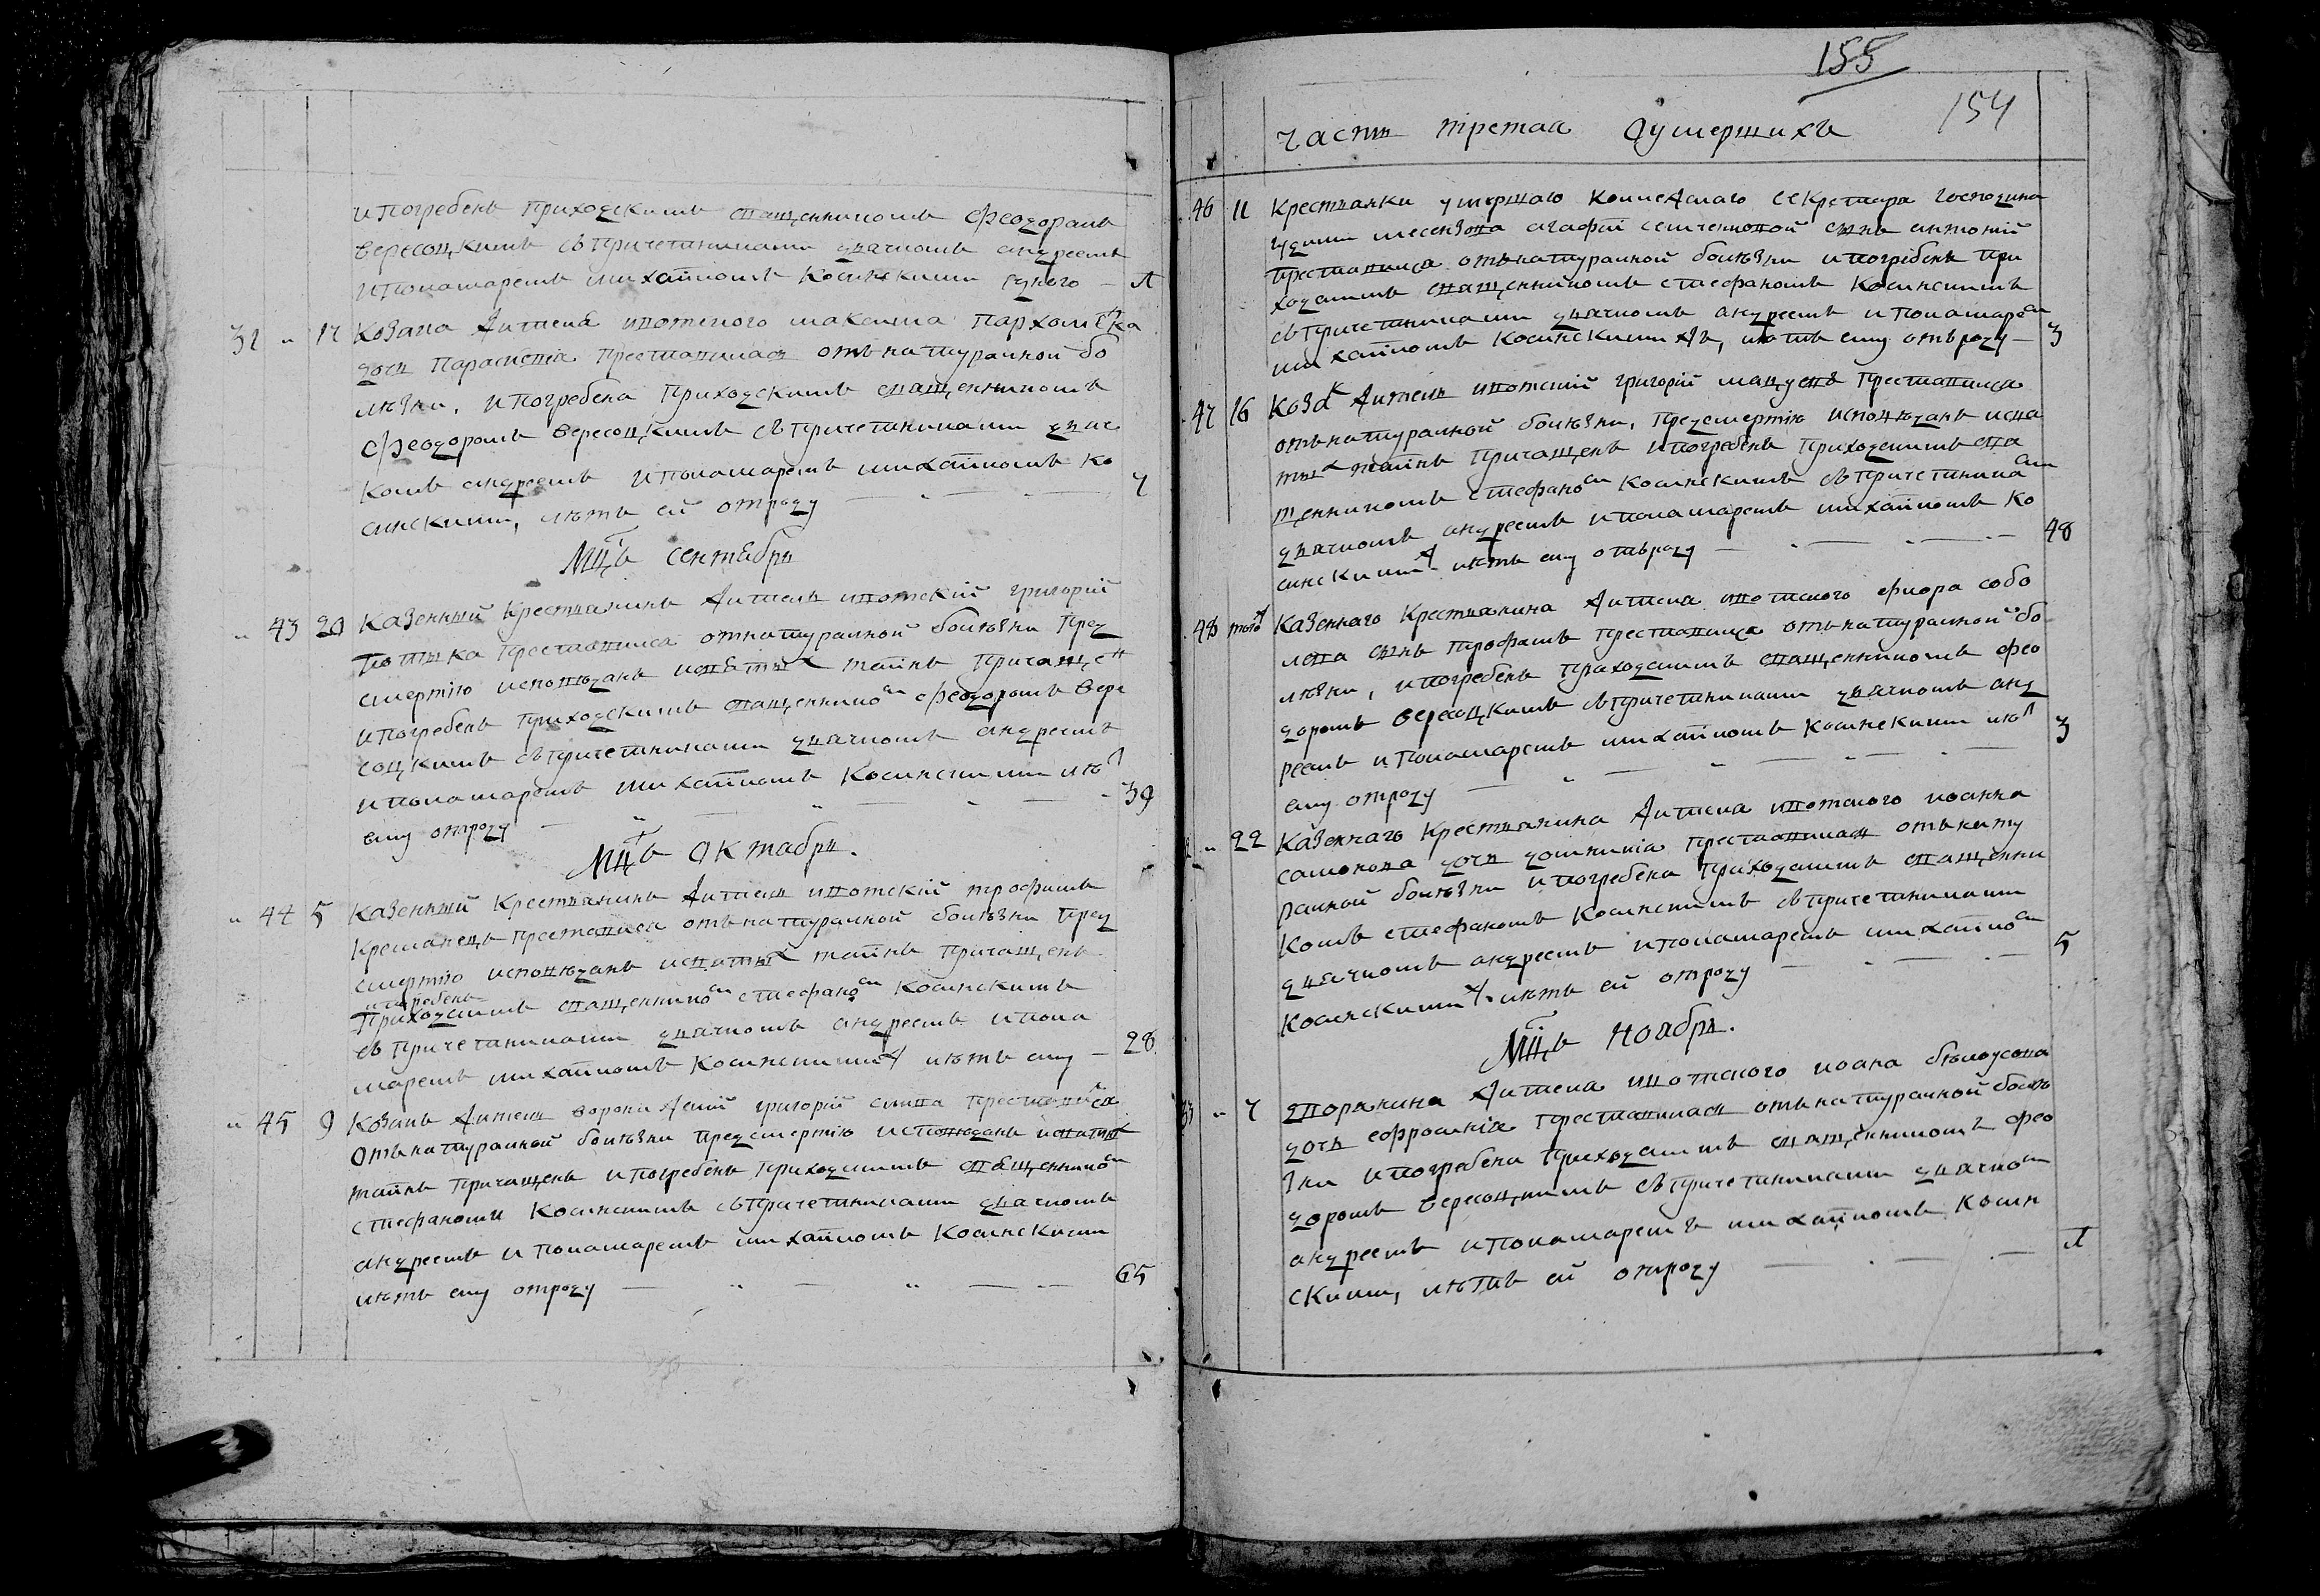 и погребенъ приходскимъ священникомъ Феодоромъ
Вересоцкимъ съ причетниками дьячкомъ андреемъ
и пономаремъ михайломъ Косинскими одного – 1
31 " 12 Козака жителя ивотского максима пархоменка
дочь Параскевіа преставилась отъ натуралной бо
лѣзни, и погребена приходскимъ священникомъ
Феодоромъ Вересоцкимъ съ причетниками дьяч
комъ андреемъ и пономаремъ михайломъ Ко
синскими, лѣтъ ей отроду — " — 2
Мцъ сентября
" 43 20 Казенный крестьянинъ житель ивотскій григорій
преставился от натуралной болѣзни пред
смертію исповѣданъ и святых тайнъ причащен
и погребенъ приходскимъ священником Феодоромъ Вере
соцкимъ съ причетниками дьячкомъ андреемъ
и пономаремъ михайломъ Косинскими лѣт
ему отроду — " — 39
Мцъ Октября.
" 44 5 Казенный крестьянинъ житель ивотскій трофимъ
преставился отъ натуралной болѣзни пред
смертію исповѣданъ и святых тайнъ причащенъ
и погребенъ
приходскимъ священником стефаном Косинскимъ
съ причетниками дьячкомъ андреемъ и поно
маремъ михайломъ Косинскими ж лѣтъ ему – 28
" 45 9 Козакъ житель григорій слива преставился
отъ натуралной болѣзни предсмертію исповѣданъ и святых
тайнъ причащенъ и погребенъ приходскимъ священником
стефаномъ Косинскимъ съ причетниками дьячкомъ
андреемъ и пономаремъ михайломъ Косинскими
лѣтъ ему отроду — " — " — 65
155
154
Часть третая о умершихъ
46 11 Крестьянки умершаго коллежского секретара господина
агафіи семченковой сынъ антоній
преставился отъ натуралной болѣзни и погребенъ при
ходскимъ священникомъ стефаномъ Косинскимъ
съ причетниками дьячкомъ андреемъ и пономарем
михайломъ Косинскими жъ, лѣтъ ему отъ роду – 3
47 16 Козак житель ивотскій григорій мацуевъ преставился
отъ натуралной болѣзни, предсмертію исповѣданъ и свя
тых тайнъ причащенъ и погребенъ приходскимъ свя
щенникомъ стефаном Косинскимъ съ причетниками
дьячкомъ андреемъ и пономаремъ михайломъ Ко
синскими ж лѣтъ ему отъ роду — " — 48
48 тогож Казеннаго крестьянина жителя ивотского флора собо
лева сынъ трофимъ преставился отъ натуралной бо
лѣзни, и погребенъ приходскимъ священникомъ фео
доромъ Вересоцкимъ съ причетниками дьячкомъ анд
реемъ и пономаремъ михайломъ Косинскими лѣт
ему отроду — " — " — 3
" 22 Казеннаго крестьянина жителя ивотского иоанна
самохова дочь домникіа преставилась отъ нату
ралной болѣзни и погребена приходскимъ священни
комъ стефаномъ Косинскимъ съ причетниками
дьячкомъ андреемъ и пономаремъ михайлом
Косинскими ж. лѣтъ ей отроду — " — 5
Мцъ Ноября.
33 " 2 дворянина жителя ивотского иоана бѣлоусова
дочь ефросинія преставилась отъ натуралной болѣ
зни и погребена приходскимъ священникомъ фео
доромъ Вересоцкимъ съ причетниками дьячком
андреемъ и пономаремъ михайломъ Косин
скими, лѣтъ ей отроду — " — 1